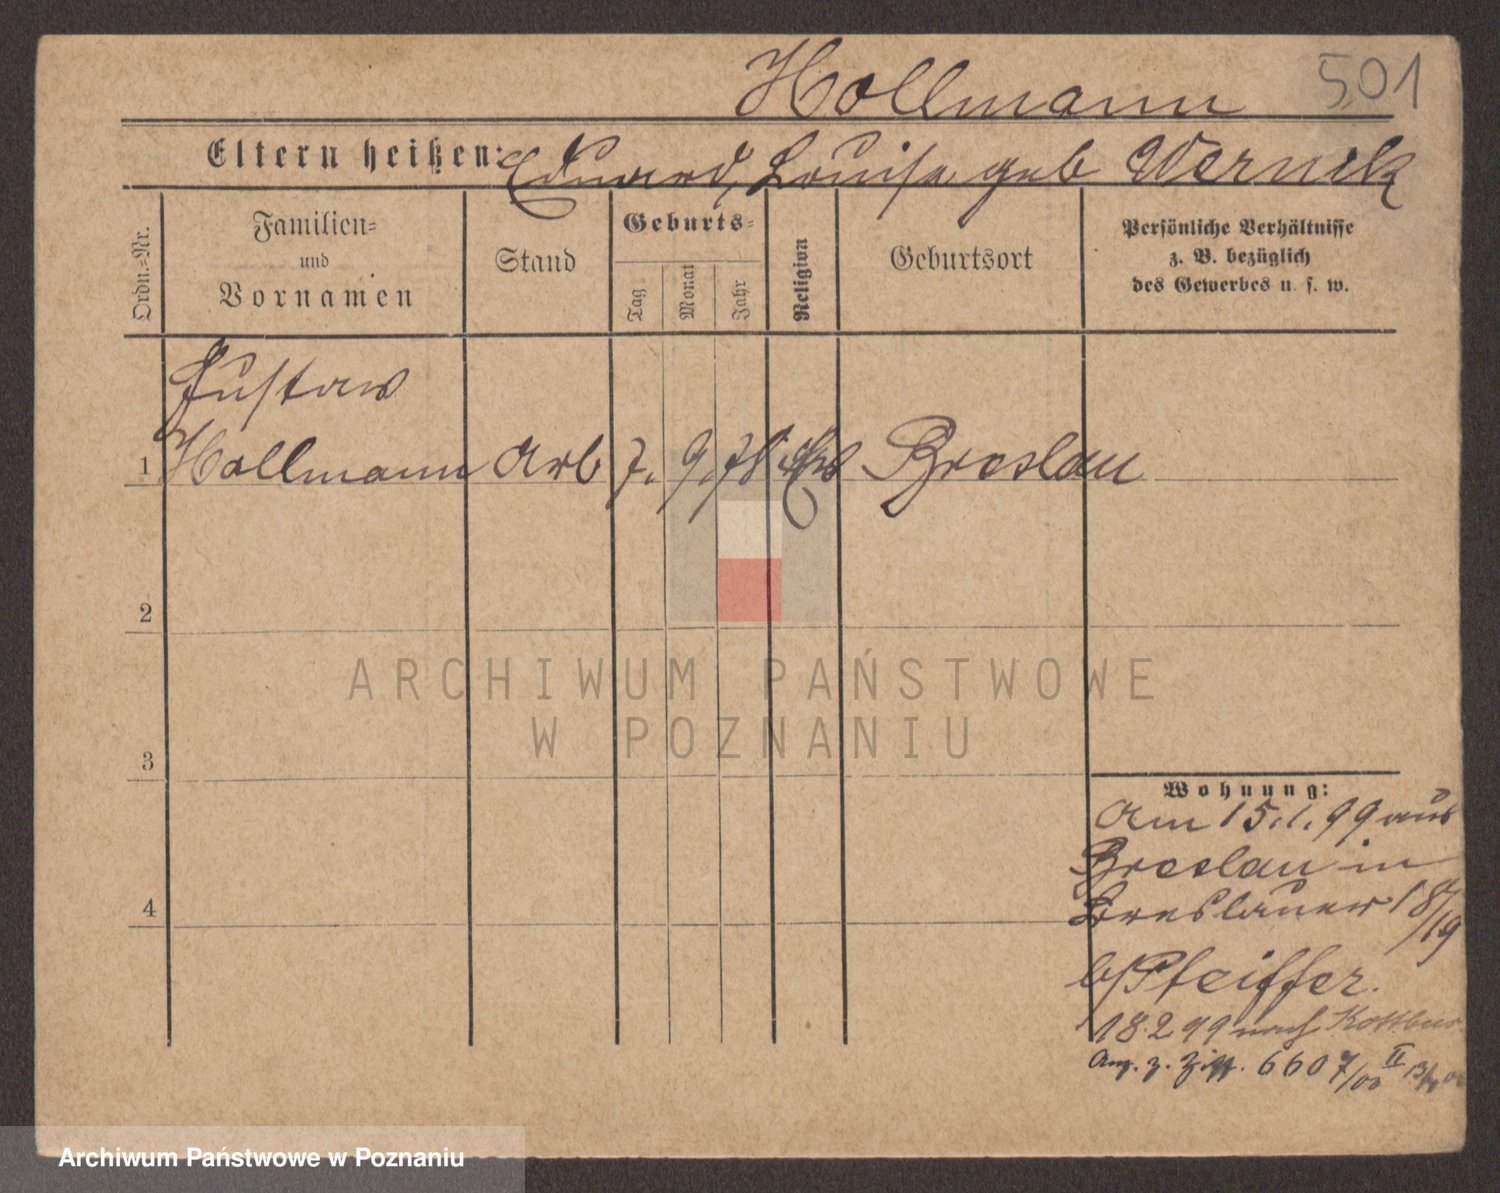 Hollmann 501
Eltern heißen: Eduard, Louise geb Wernik
Ordn.=Nr.
Familien=
und
Vornamen
Stand
Geburts=
Tag
Monat
Jahr
Religion
Geburtsort
Persönliche Verhältnisse
z. B. bezüglich
des Gewerbes u. s. w.
Gustav
1 Hollmann Arb 7. 9. 78 Ev Breslau
2
3
4
ARCHIWUM PAŃSTWOWE
W POZNANIU
Wohnung:
Am 15.1.99 aus
Breslau in
Breslauer 18/19
b/Pfeiffer.
18.2 99 nach Kottbus
6607/00 II
Archiwum Państwowe w Poznaniu